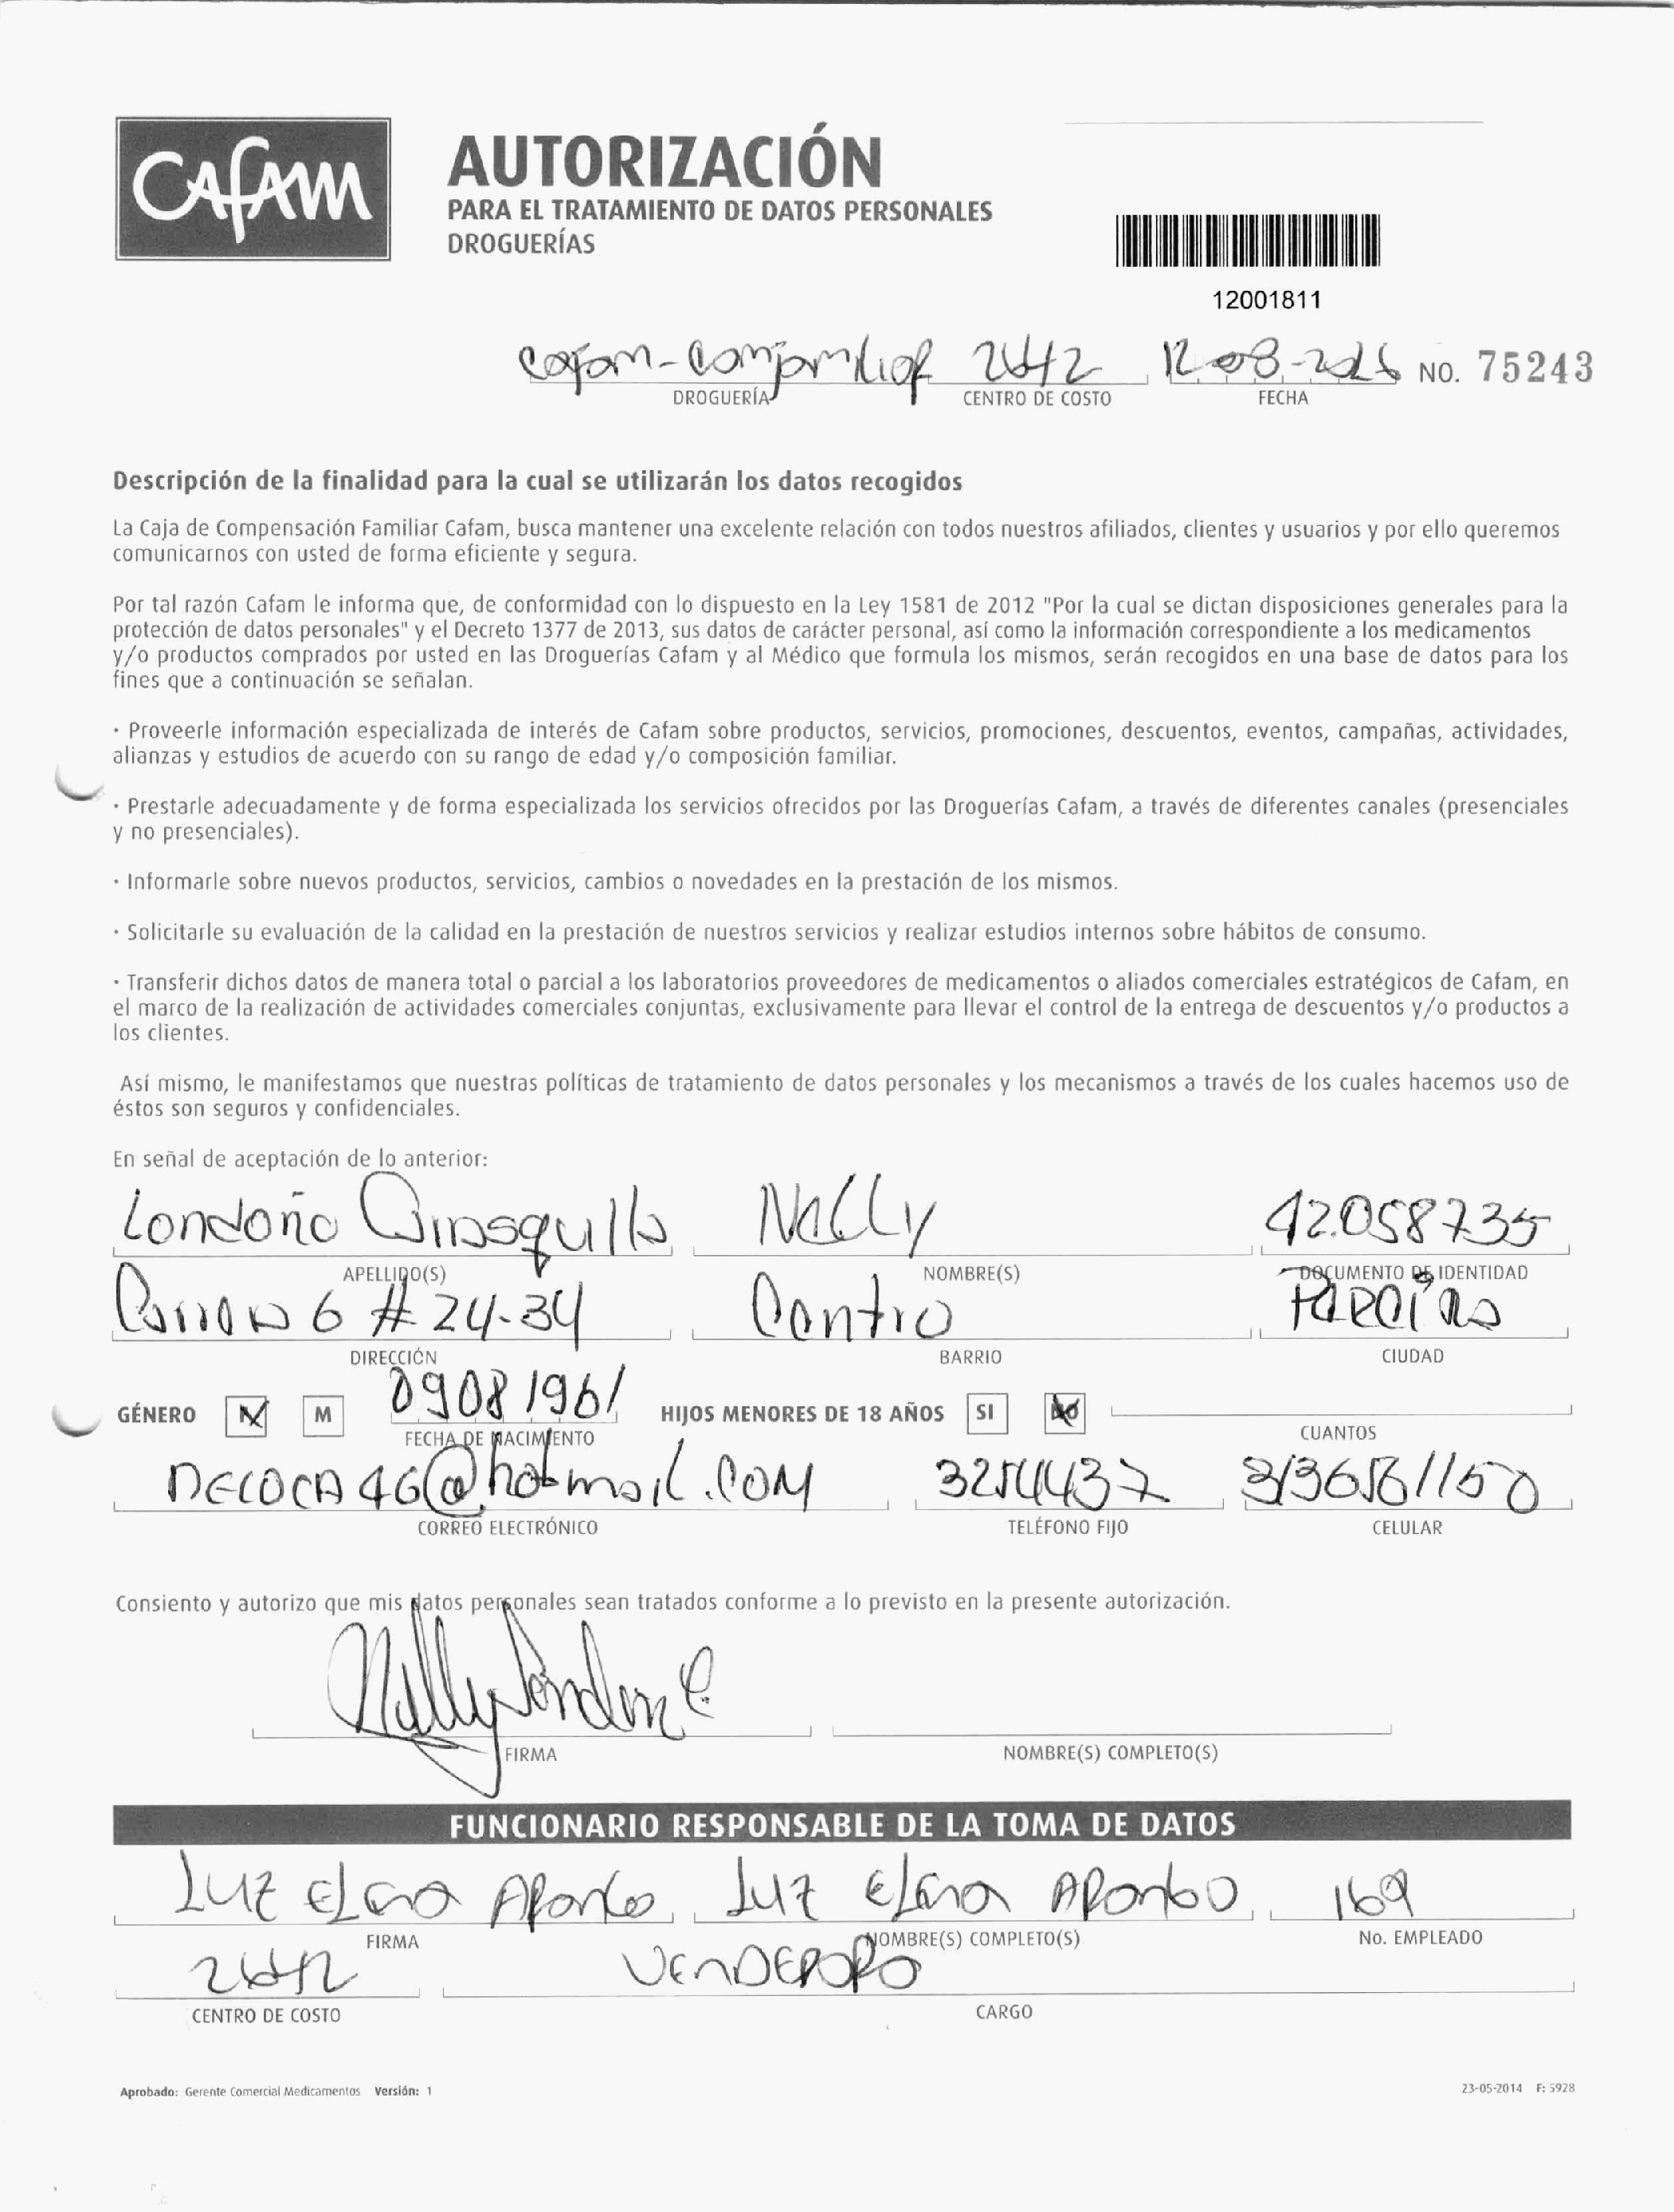 CAFAM
AUTORIZACIÓN
PARA EL TRATAMIENTO DE DATOS PERSONALES
DROGUERÍAS
12001811
NO. 75243
DROGUERÍA CENTRO DE COSTO FECHA
Descripción de la finalidad para la cual se utilizarán los datos recogidos
La Caja de Compensación Familiar Cafam, busca mantener una excelente relación con todos nuestros afiliados, clientes y usuarios y por ello queremos
comunicarnos con usted de forma eficiente y segura.
Por tal razón Cafam le informa que, de conformidad con lo dispuesto en la Ley 1581 de 2012 "Por la cual se dictan disposiciones generales para la
protección de datos personales" y el Decreto 1377 de 2013, sus datos de carácter personal, así como la información correspondiente a los medicamentos
y/o productos comprados por usted en las Droguerías Cafam y al Médico que formula los mismos, serán recogidos en una base de datos para los
fines que a continuación se señalan.
· Proveerle información especializada de interés de Cafam sobre productos, servicios, promociones, descuentos, eventos, campañas, actividades,
alianzas y estudios de acuerdo con su rango de edad y/o composición familiar.
· Prestarle adecuadamente y de forma especializada los servicios ofrecidos por las Droguerías Cafam, a través de diferentes canales (presenciales
y no presenciales).
· Informarle sobre nuevos productos, servicios, cambios o novedades en la prestación de los mismos.
· Solicitarle su evaluación de la calidad en la prestación de nuestros servicios y realizar estudios internos sobre hábitos de consumo.
· Transferir dichos datos de manera total o parcial a los laboratorios proveedores de medicamentos o aliados comerciales estratégicos de Cafam, en
el marco de la realización de actividades comerciales conjuntas, exclusivamente para llevar el control de la entrega de descuentos y/o productos a
los clientes.
Así mismo, le manifestamos que nuestras políticas de tratamiento de datos personales y los mecanismos a través de los cuales hacemos uso de
éstos son seguros y confidenciales.
En señal de aceptación de lo anterior:
Londoño Nelly 42.058735
APELLIDO(S) NOMBRE(S) DOCUMENTO DE IDENTIDAD
6 # 24-34 Centro
DIRECCIÓN BARRIO CIUDAD
GÉNERO M 09081961 HIJOS MENORES DE 18 AÑOS SI NO
FECHA DE NACIMIENTO CUANTOS
@hotmail.com
CORREO ELECTRÓNICO TELÉFONO FIJO CELULAR
Consiento y autorizo que mis datos personales sean tratados conforme a lo previsto en la presente autorización.
FIRMA NOMBRE(S) COMPLETO(S)
FUNCIONARIO RESPONSABLE DE LA TOMA DE DATOS
Luz Elena Luz Elena 169
FIRMA NOMBRE(S) COMPLETO(S) No. EMPLEADO
CENTRO DE COSTO CARGO
Aprobado: Gerente Comercial Medicamentos Versión: 1 23-05-2014 F: 5928